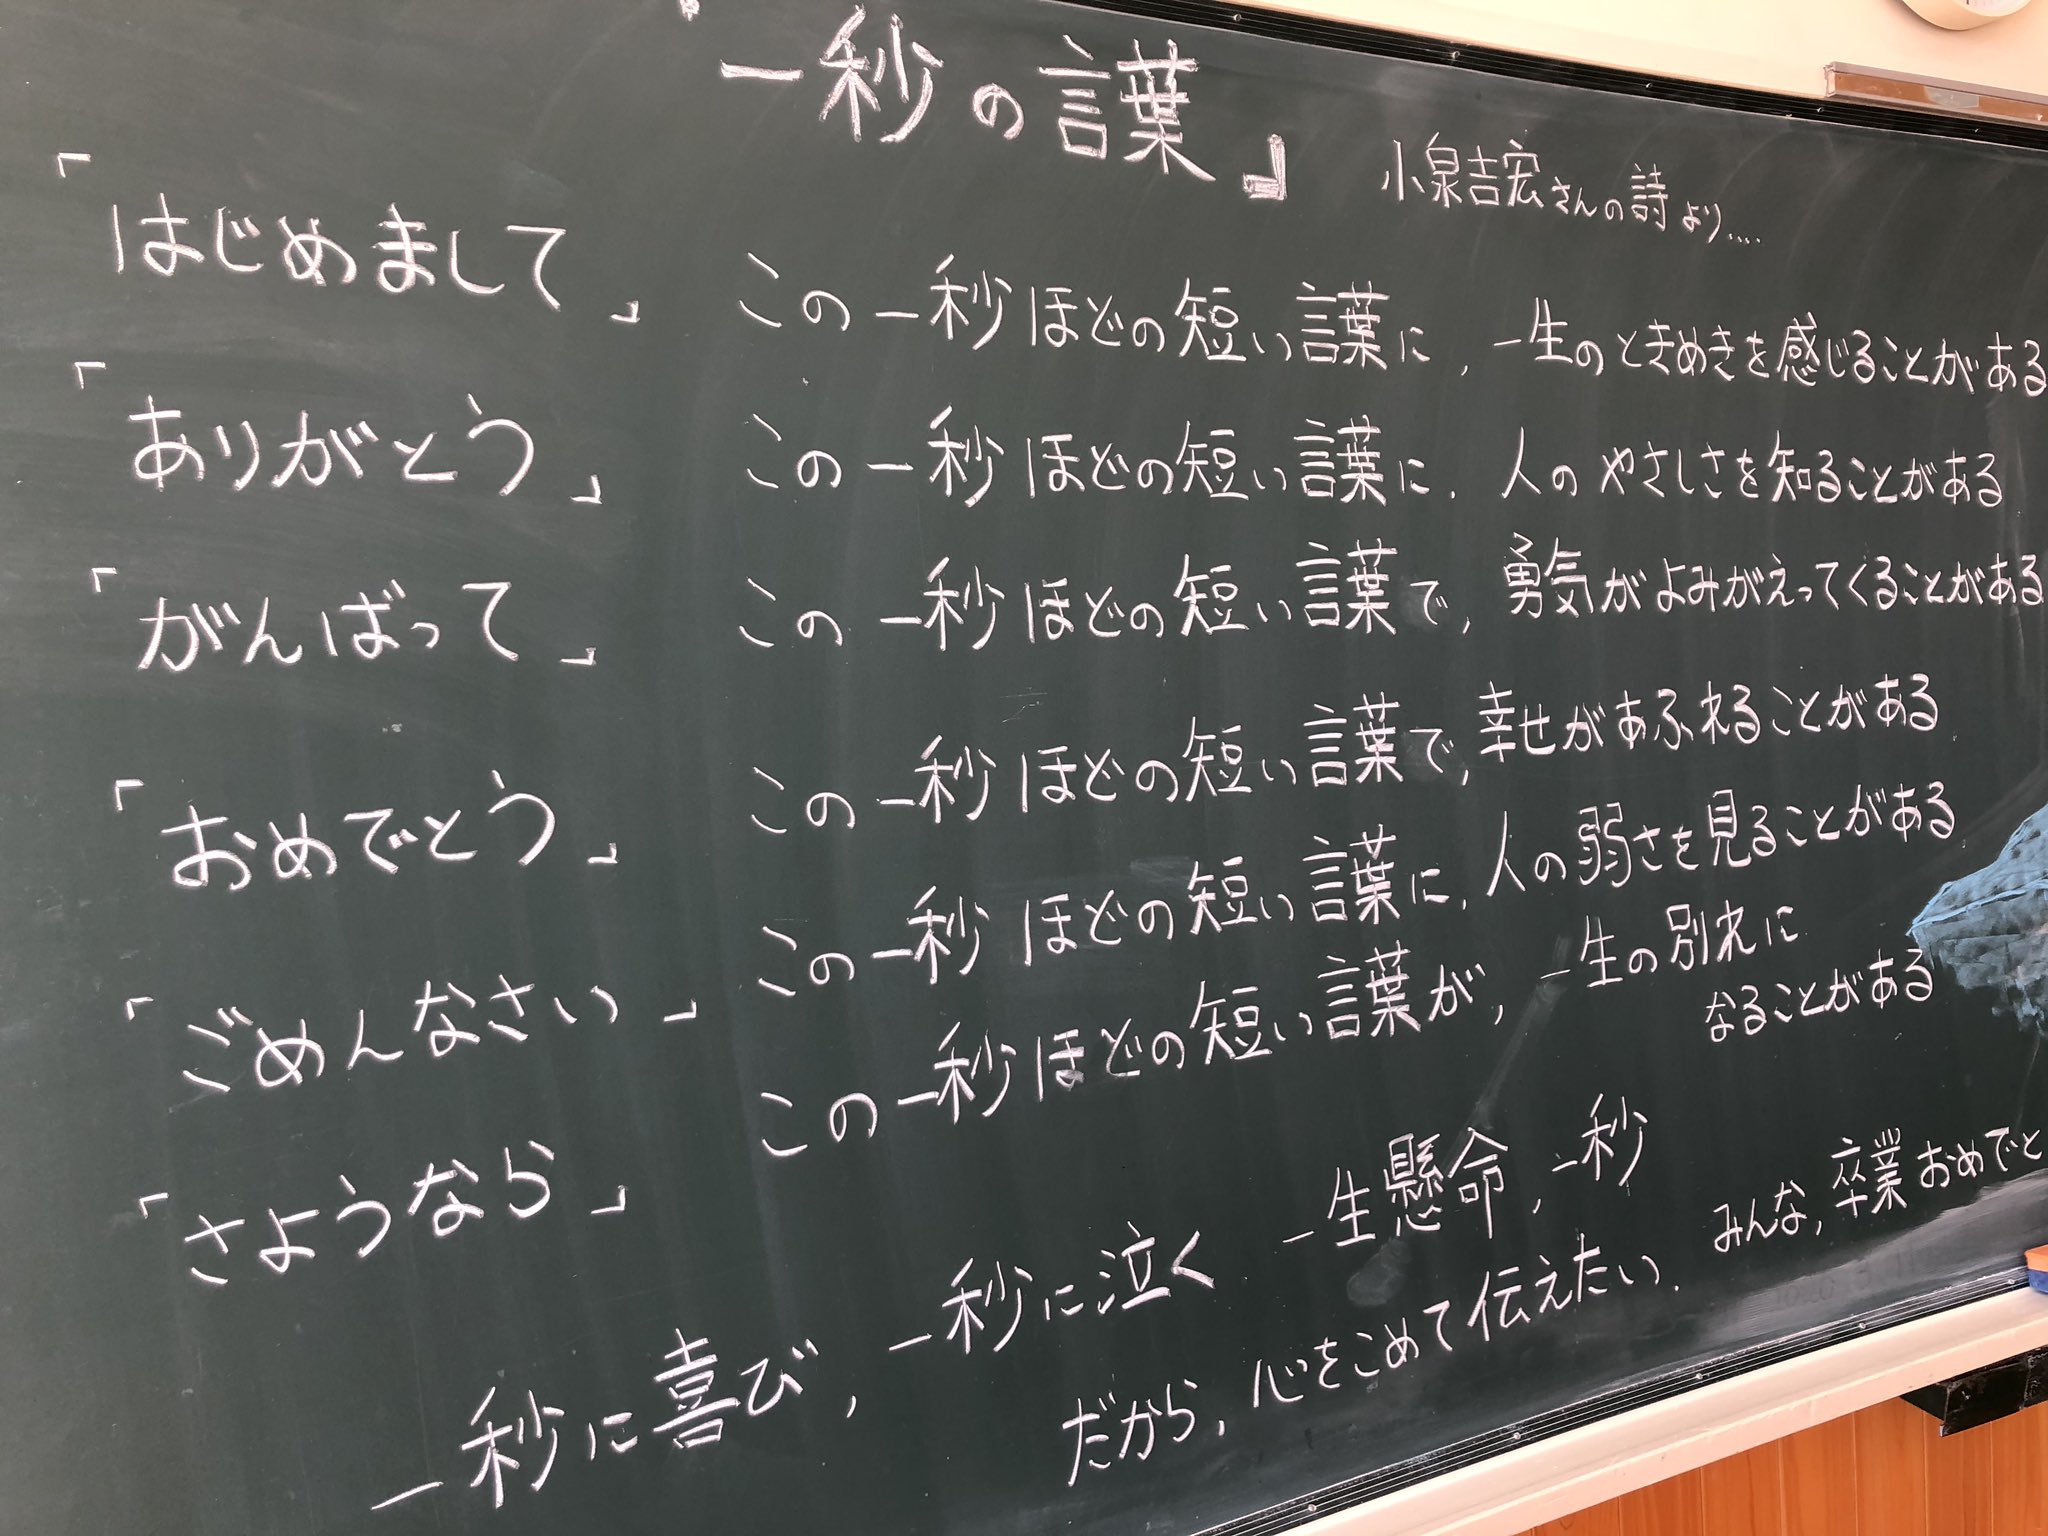 『一秒の言葉』
小泉吉宏さんの詩より....
「はじめまして」 この一秒ほどの短い言葉に，一生のときめきを感じることがある
「ありがとう」 この一秒ほどの短い言葉に，人のやさしさを知ることがある
「がんばって」 この一秒ほどの短い言葉で，勇気がよみがえってくることがある
「おめでとう」 この一秒ほどの短い言葉で，幸せがあふれることがある
「ごめんなさい」 この一秒ほどの短い言葉に，人の弱さを見ることがある
「さようなら」 この一秒ほどの短い言葉が，一生の別れに
なることがある
一秒に喜び，一秒に泣く 一生懸命，一秒
だから，心をこめて伝えたい．
みんな，卒業おめでと